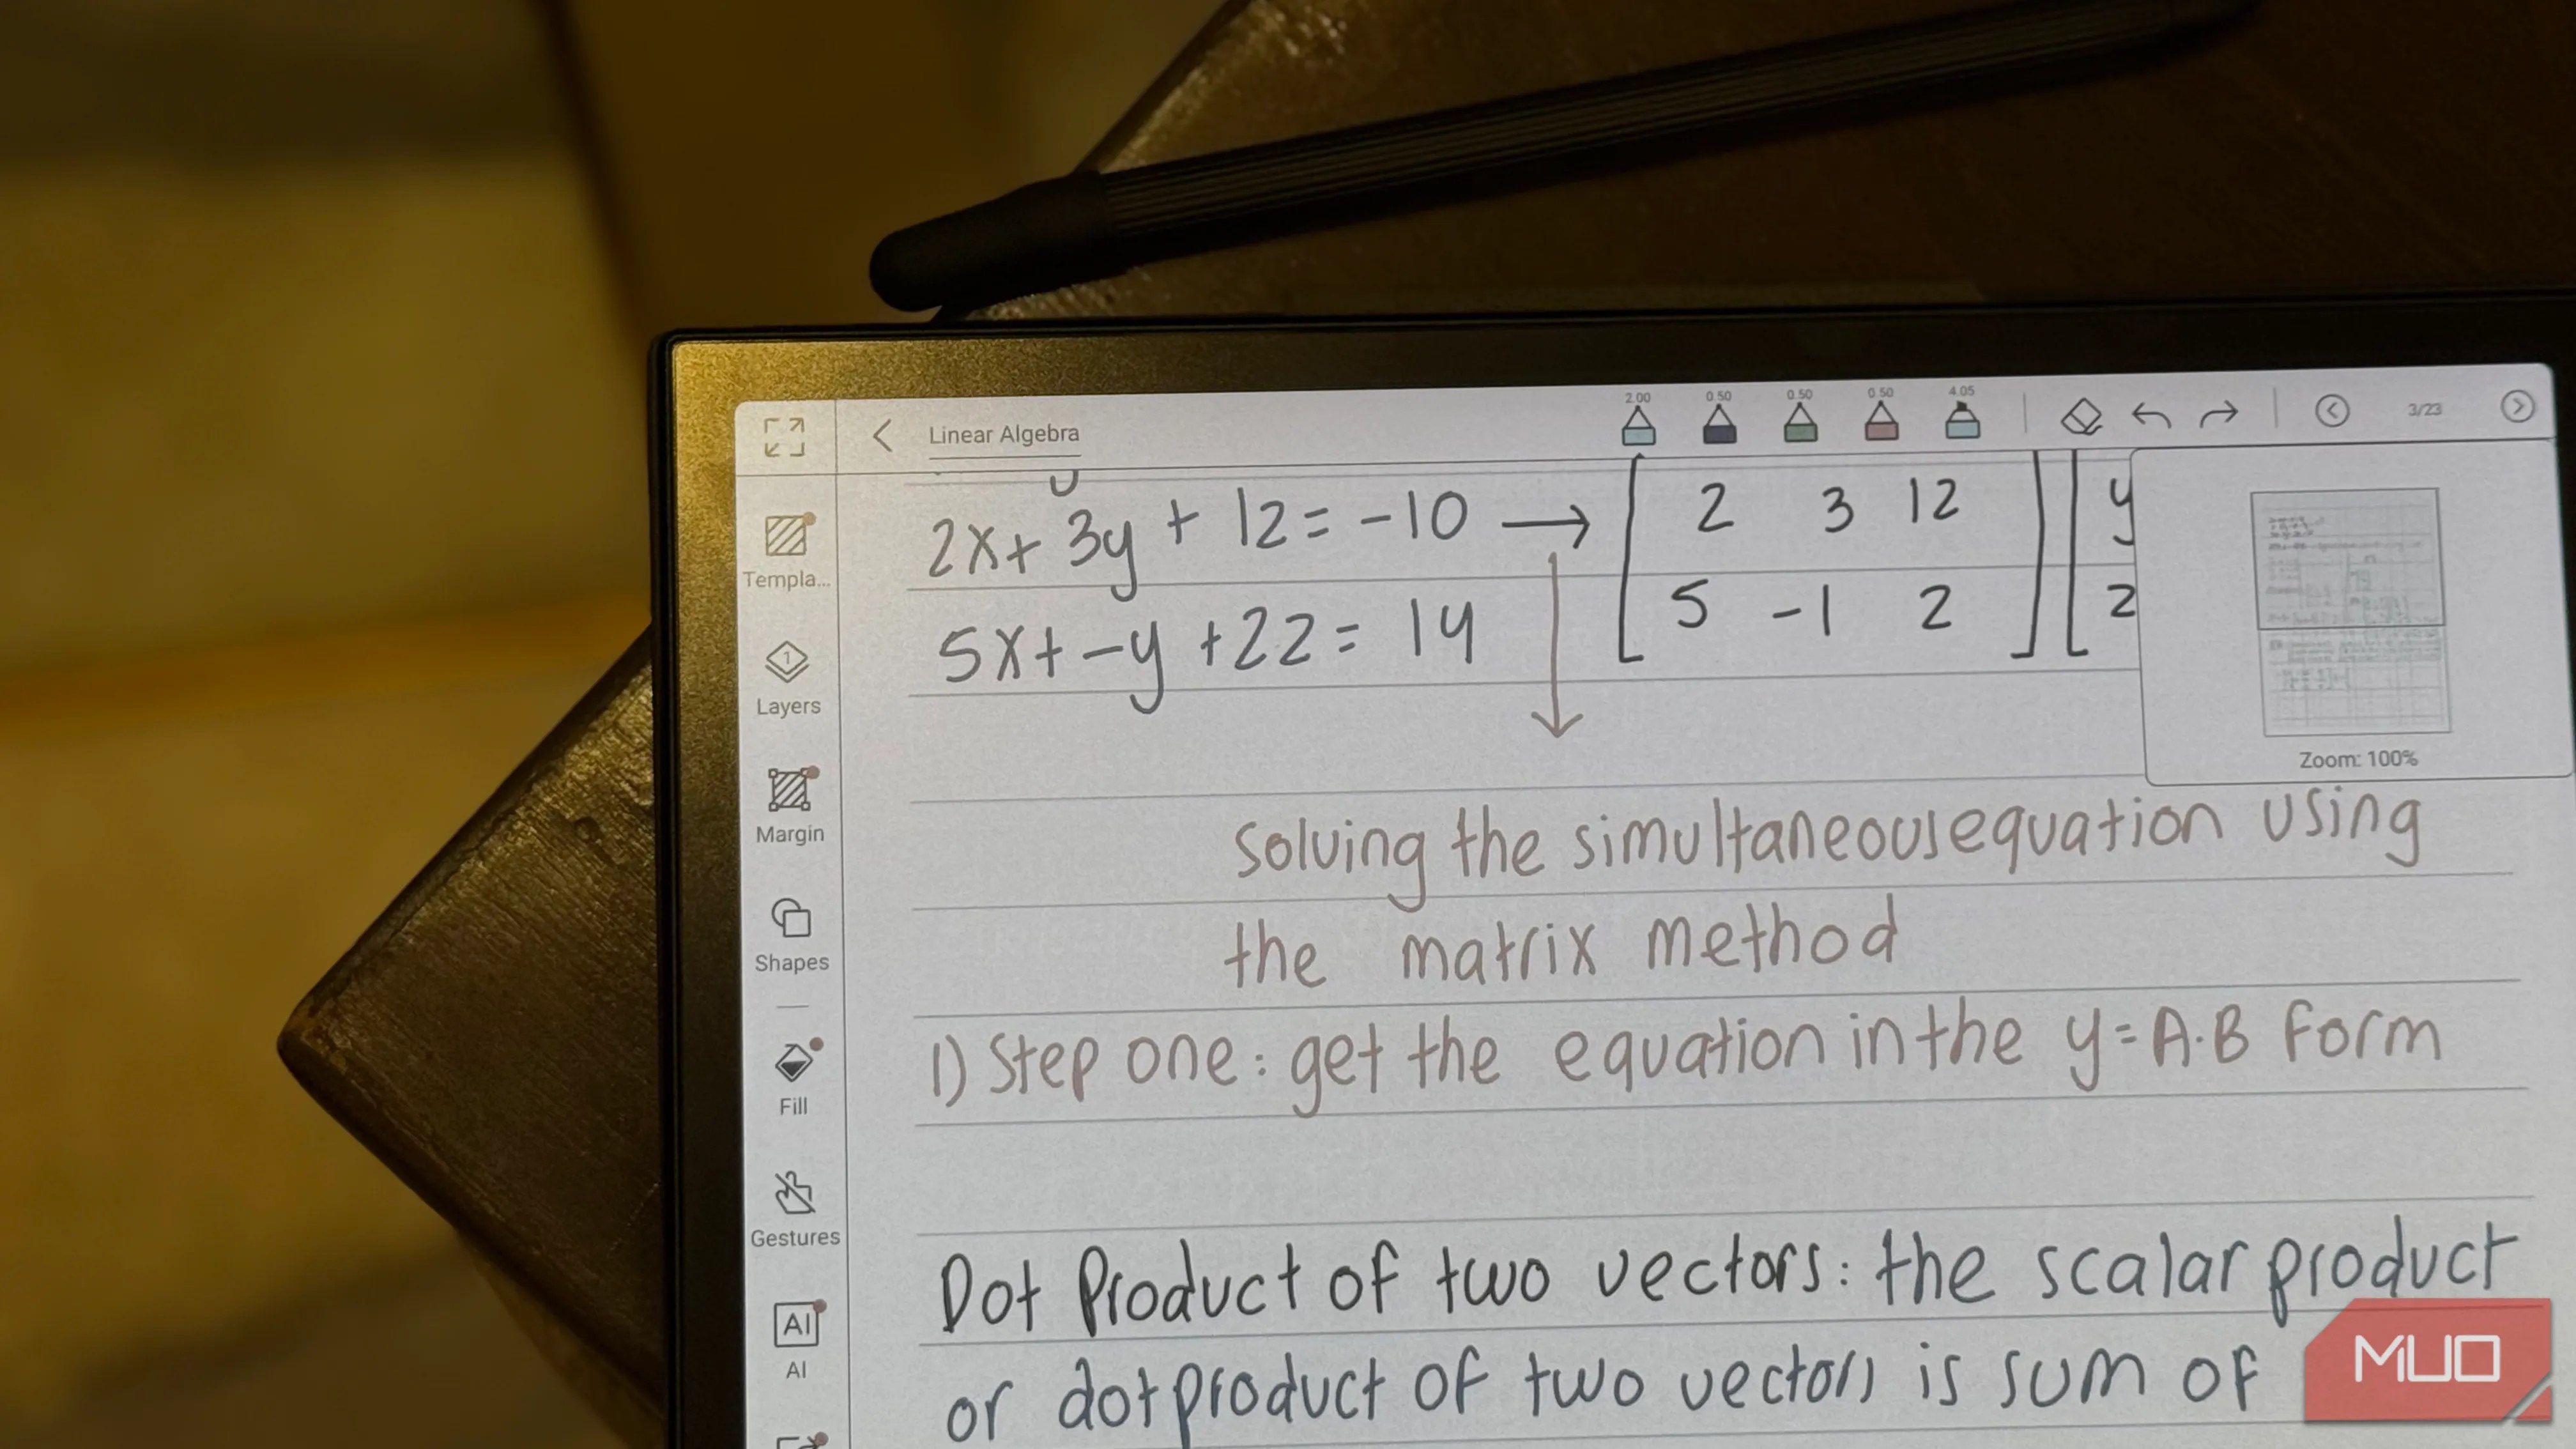 2.00 0.50 0.50 0.50 4.05
Linear Algebra
3/23
2x+ 3y + 12 = -10 → [ 2 3 12 ] [ y
5x+ -y +22 = 14 [ 5 -1 2 ] [ z
Templa...
Layers
Margin
Shapes
Fill
Gestures
AI
AI
Zoom: 100%
solving the simultaneous equation using
the matrix method
1) Step one: get the equation in the y=A·B form
Dot Product of two vectors: the scalar product
or dot product of two vectors is sum of
MUO